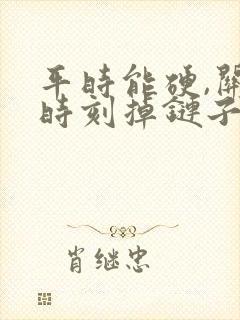 平時能硬,關
時刻掉鏈子
肖继忠